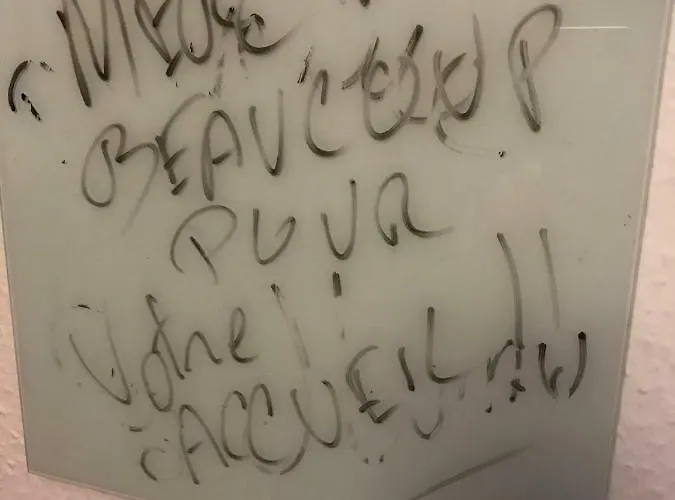 BEAUCOUP
POUR
Votre
ACCUEIL !!